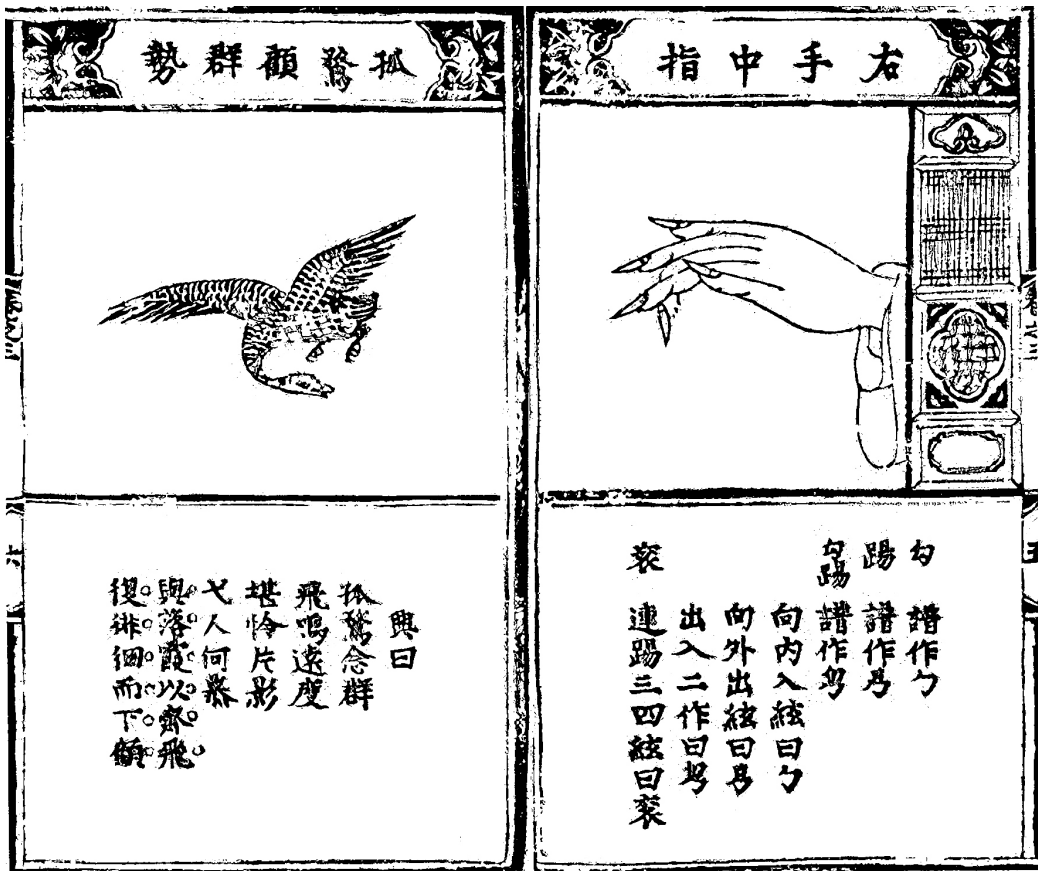 右手中指
勾 譜作勹
踢 譜作
勾踢 譜作
向內入絃曰勹
向外出絃曰
出入二作曰
衮 連踢三四絃曰衮
五
孤鶩顧群勢
興曰
孤鶩念群
飛鳴遠度
堪憐片影
弋人何慕
與落霞以齊飛
復徘徊而下顧
六